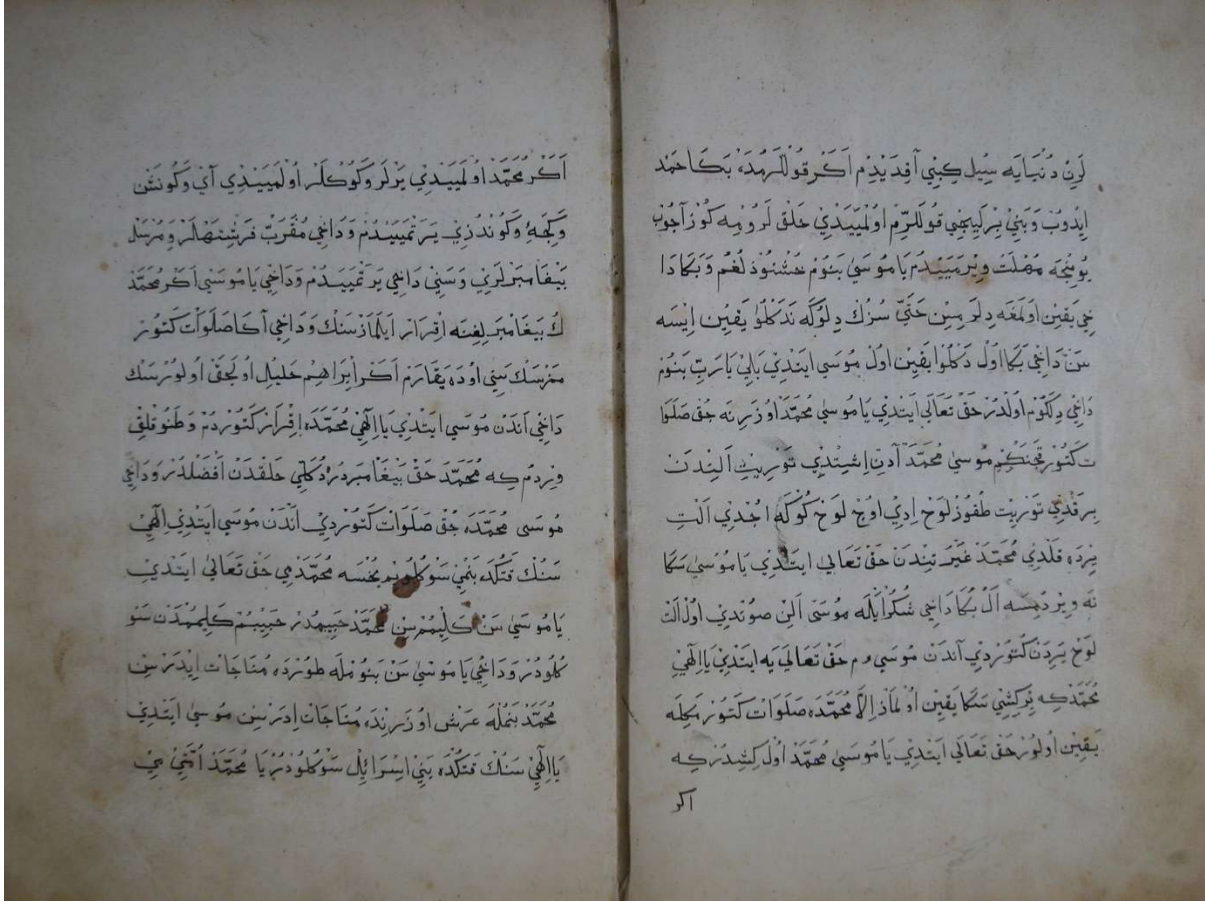 لَرِنْ دُنْيَايَه سِيلْ كِبِي آقِدَيْدِمْ اَكَرْ قُوللَرُمْدَه بَكَا حَمْد
اِيدُوبْ وَبَنِي بِرْلَيِيجِي قُوللَرِمْ اُولْمَيَيْدِي خَلْقْ لَرُومِه كُوزْ آجُوبْ
يُومِنْجَه مُهْلَتْ وِيرْمَيَيْدُمْ يَا مُوسَى بَنُوم خُشْنُودْ لُغُمْ وَبَكَا دَا
خِي يَقِينْ اُولْمَغَه دِلَرْ مِسِنْ حَتَّى سُزُكْ دِلُوكَه نَدَكْلُوا يَقِينْ اِيسَه
سَنْ دَاخِي بَكَا اُولْ دَكْلُوا يَقِينْ اُولْ مُوسَى ايتدِي بَالِي يَارَبِّ بَنُوم
دَاخِي دِلَكُوم اُولدُرْ حَقْ تَعَالَى ايتدِي يَا مُوسَى مُحَمَّدْ اُوزَرِنَه جُقْ صَلَوَا
ت كَتُورْ قَچَنْكِمْ مُوسَى مُحَمَّدْ آدِنْ اِشِيتْدِي تَوْرِيتِ اَلِنْدَنْ
بِرَقْدِي تَوْرِيتْ طُقُوزْ لَوْحْ اِدِي اُوچْ لَوْحْ كُوكَه اُچْدِي آلْتِ
يِرْدَه قَلْدِي مُحَمَّدْ غَيْرَتِنْدَنْ حَقْ تَعَالَى ايتَّدِي يَا مُوسَى سَكَا
نَه وِيرْدُمِسَه آلْ بُكَا دَاخِي شُكْرْ اَيْلَه مُوسَى اَلِنْ صُونْدِي اُولْ آلْت
لَوْحِ يَرِدَنْ كَتُورْدِي آنْدَنْ مُوسَى ءم حَقْ تَعَالَى يَه ايتدِي يَا اِلَهِي
مُحَمَّدْ كِه بِرْ كِشِي سَكَا يَقِينْ اُولْمَازْ اِلَّا مُحَمَّدَه صَلَوَاتْ كَتُورْمَكِلَه
يَقِينْ اُولُورْ حَقْ تَعَالَى ايتدِي يَا مُوسَى مُحَمَّدْ اُولْ كِشِدُرْ كِه
اكر
اَكَرْ مُحَمَّدْ اُولْمَيَيْدِي يَرْلَرْ وَكُوكْلَرْ اُولْمَيَيْدِي آيْ وَكُونَشِنْ
وَكِجَهْ وَكُونْدُزِي يَرَتْمَيَيْدُمْ وَدَاخِي مُقَرَّبْ فَرِشْتَهْلَرْ وَمُرْسَلْ
پَيْغَامْبَرْلَرِي وَسَنِي دَاخِي يَرَتْمَيَيْدُمْ وَدَاخِي يَا مُوسَى اَكَرْ مُحَمَّدْ
كْ پَيْغَامْبَرْلِغِنَه اِقْرَارْ اَيْلَمَازْسَنْكْ وَدَاخِي آكَا صَلَوَاتْ كَتُورْ
مَزْسَكْ سَنِي اُودَه يَقَارَمْ اَكَرْ اِبْرَاهِيمْ خَلِيلْ اُولَجَقْ اُولُورْسَكْ
دَاخِي آنْدَنْ مُوسَى ايتدِي يَا اِلَهِي مُحَمَّدَه اِقْرَارْ كَتُورْدُمْ وَطَنُوقْلِقْ
وِيرْدُمْ كِه مُحَمَّدْ حَقْ پَيْغَامْبَرْدُرْ دُكَلِي خَلْقْدَنْ اَفْضَلْدُرْ وَدَاخِي
مُوسَى مُحَمَّدَه جُقْ صَلَوَاتْ كَتُورْدِي آنْدَنْ مُوسَى ايتدِي اِلَهِي
سَنُكْ قَتُكْدَه بَنْمِي سَوْكُلُويِمْ يُخْسَه مُحَمَّدْمِي حَقْ تَعَالَى ايتَدِي
يَا مُوسَى سَنْ كَلِيمُمْسِنْ مُحَمَّدْ حَبِيبُمْدُرْ حَبِيبُمْ كَلِيمُمْدَنْ سَوْ
كُلُودُرْ وَدَاخِي يَا مُوسَى سَنْ بَنُومْلَه طُورْدَه مُنَاجَاتْ اِيدَرْسِنْ
مُحَمَّدْ بَنُمْلَه عَرْشْ اُوزَرِنْدَه مُنَاجَاتْ اِدَرْسِنْ مُوسَى ايتَدِي
يَا اِلَهِي سَنُكْ قَتُكْدَه بَنِي اِسْرَائِلْ سَوْكُلُودُرْ يَا مُحَمَّدْ اُمَّتِي مِي